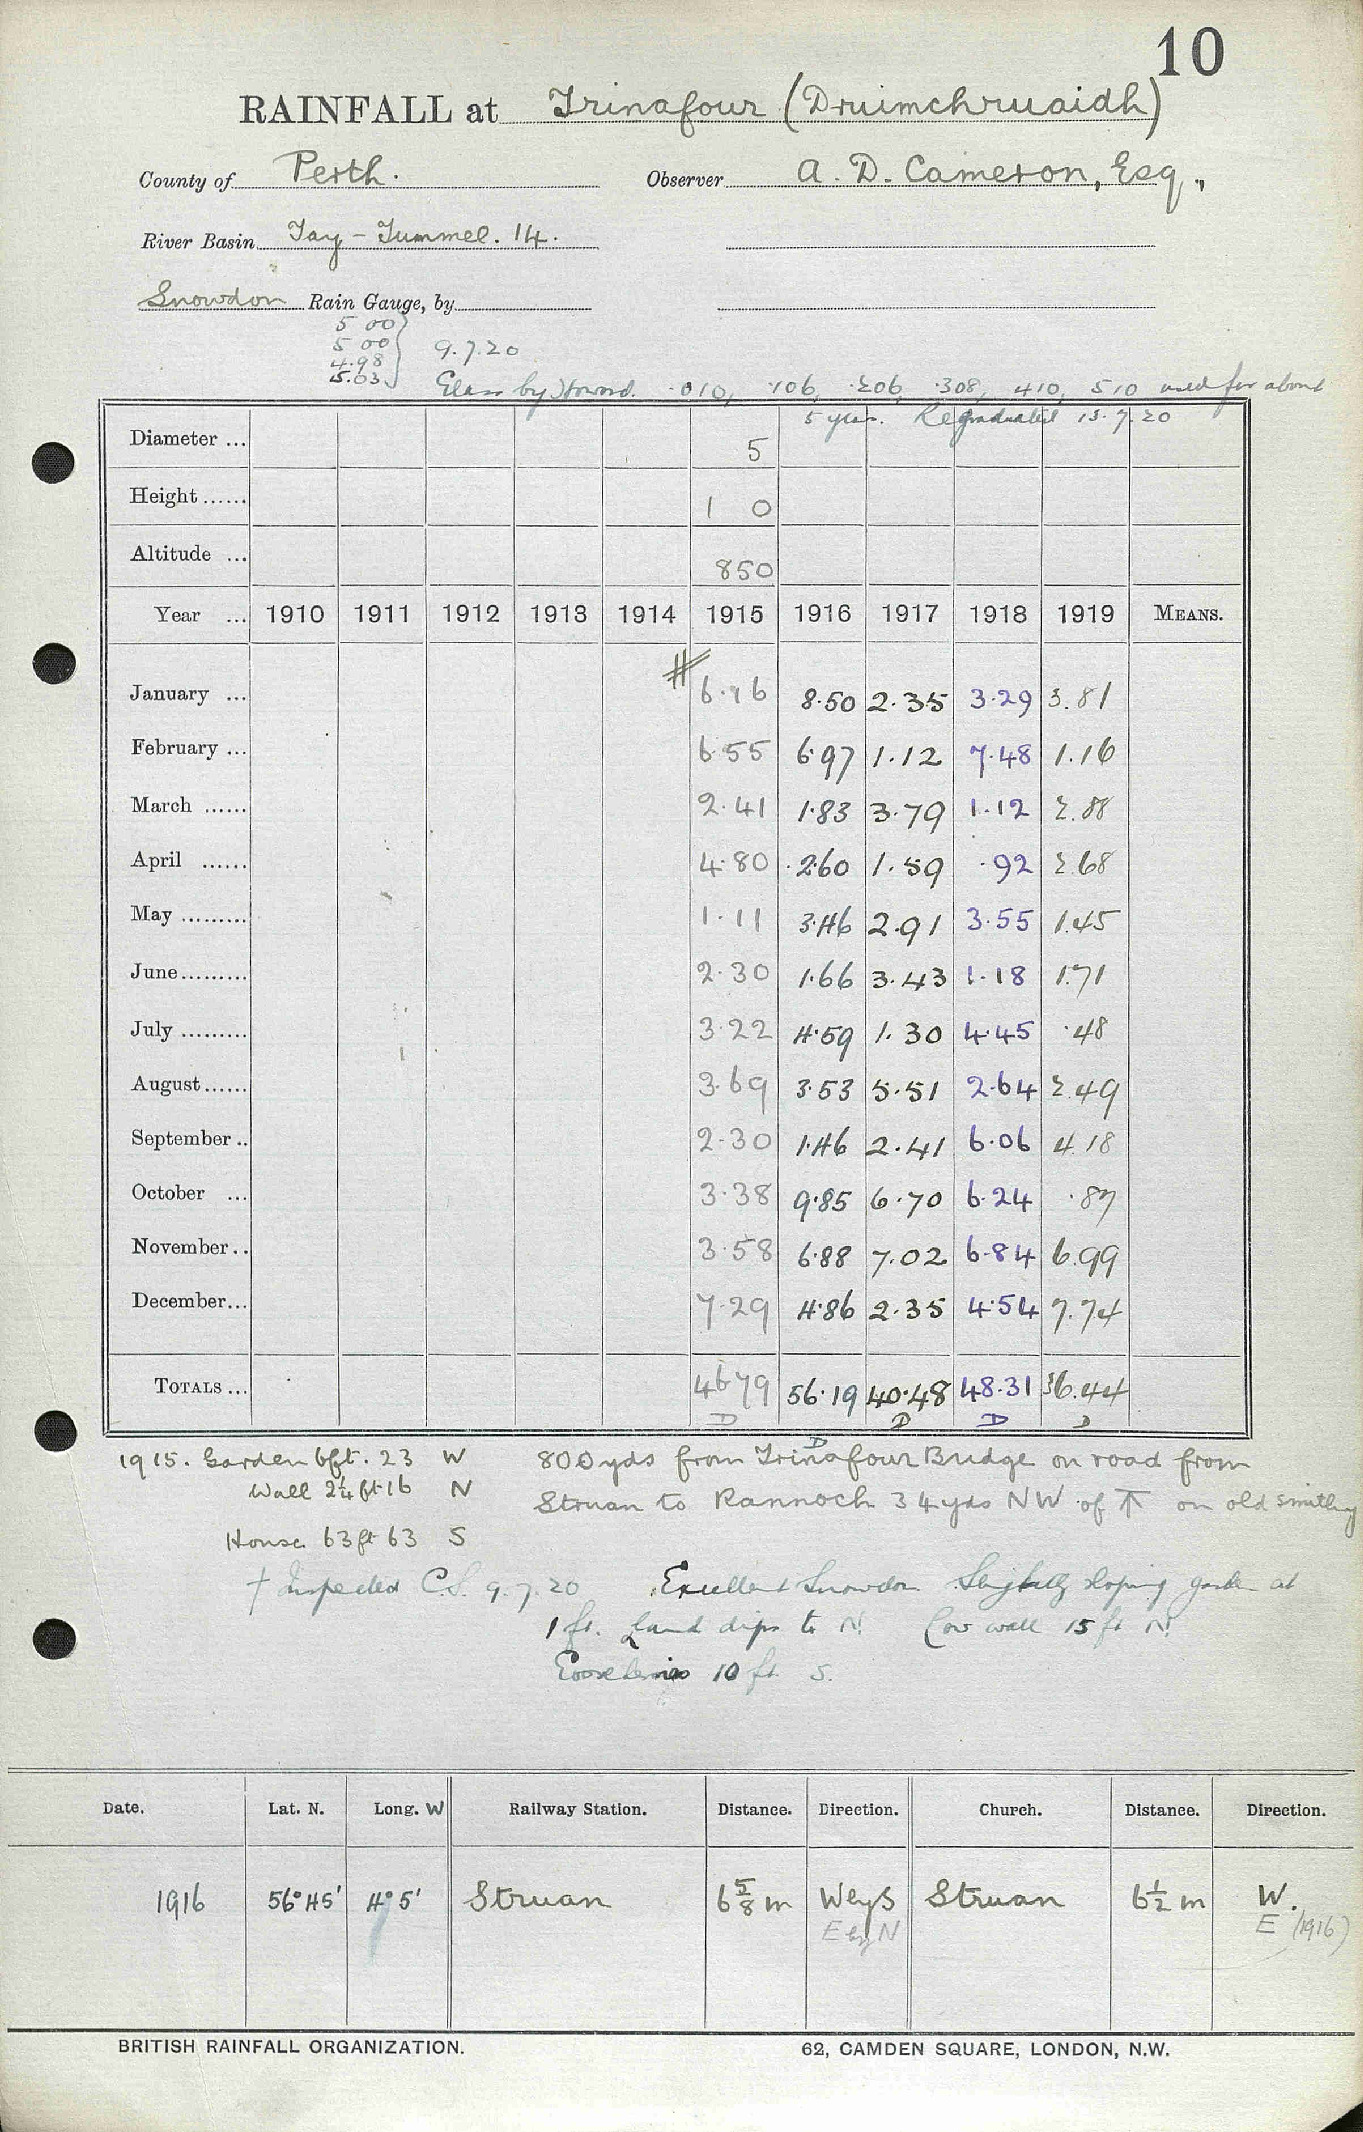 10
RAINFALL at Trinafour (Druimchruaidh)
County of Perth. Observer A. D. Cameron, Esq.,
River Basin Tay - Tummel. 14.
Snowdon Rain Gauge, by
5 00
5 00
4.98
5.03 } 9.7.20
Glass by Howard. .010, .106, .206, .308, 410, 510 used for about
5 years. Regraduated 13.7.20
Diameter ... 5
Height ...... 1 0
Altitude ... 850
Year ... 1910 1911 1912 1913 1914 1915 1916 1917 1918 1919 MEANS.
January ... 6.16 8.50 2.35 3.29 3.81
February ... 6.55 6.97 1.12 7.48 1.16
March ...... 2.41 1.83 3.79 1.12 2.88
April ...... 4.80 2.60 1.59 .92 2.68
May ......... 1.11 3.46 2.91 3.55 1.45
June......... 2.30 1.66 3.43 1.18 1.71
July ......... 3.22 4.59 1.30 4.45 .48
August...... 3.69 3.53 5.51 2.64 2.49
September .. 2.30 1.46 2.41 6.06 4.18
October ... 3.38 9.85 6.70 6.24 .87
November .. 3.58 6.88 7.02 6.84 6.99
December... 7.29 4.86 2.35 4.54 7.74
TOTALS ... 46.79 56.19 40.48 48.31 36.44
D D D D D
1915. Garden 6ft. 23 W
Wall 2¼ ft 16 N
House 63 ft 63 S
800 yds from Trinafour Bridge on road from
Struan to Rannoch 34 yds NW of ↑ on old smithy
† Inspected C.S. 9.7.20 Excellent Snowdon Slightly sloping garden at
1 ft. Land dips to N. Low wall 15 ft N.
Gooseberries 10 ft S.
Date. Lat. N. Long. W Railway Station. Distance. Direction. Church. Distance. Direction.
1916 56° 45' 4° 5' Struan 6⅝ m W by S Struan 6½ m W.
E by N E (1916)
BRITISH RAINFALL ORGANIZATION. 62, CAMDEN SQUARE, LONDON, N.W.